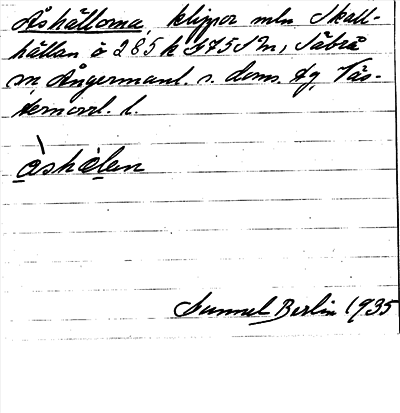 Åshällorna, klippor mln Skall-
hällan o 285 k 475 S m, Säbrå
sn, Ångermanl. s. doms. tg, Väs-
ternorrl. l.
åshä̀lan
Gunnel Berlin 1935